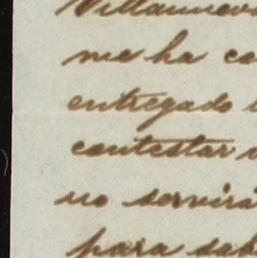 Villanueva
me ha co
entregado
contestar
no servirá
para sab